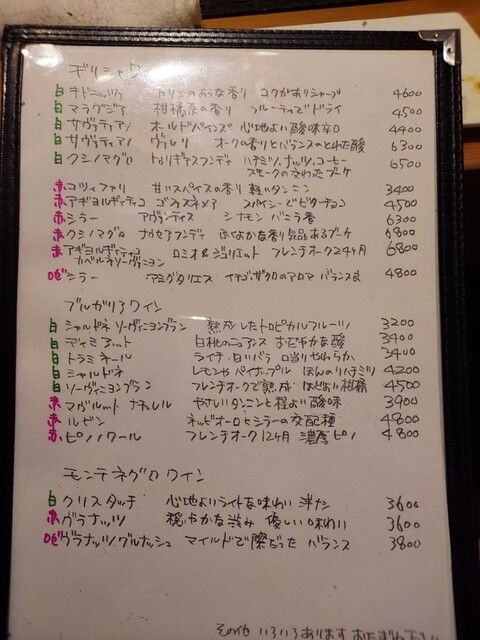 ギリシャワイン
白 キドニッツァ カリンのような香り コクがありシャープ 4600
白 マラグジア 柑橘系の香り フルーティでドライ 4500
白 サヴァティアノ オールドバインズ 心地よい酸味辛口 4400
白 サヴァティアノ ヴァレリ オークの香りとバランスのとれた酸 6300
白 クシノマグロ ハチミツ、ナッツ、コーヒー 6500
スモークの交わったブーケ
赤 コツィファリ 甘いスパイスの香り 軽いタンニン 3400
赤 アギヨルギティコ スパイシーでビターチョコ 4500
赤 シラー アヴァンティス シナモン バニラ香 6300
赤 クシノマグロ ふくよかな香り 気品あるブーケ 6800
赤 アギヨルギティコ ロミオ&ジュリエット フレンチオーク24ヶ月 6800
カベルネソーヴィニヨン
ロゼ シラー アミグダリエス イチゴ、ザクロのアロマ バランス良 4800
ブルガリアワイン
白 シャルドネ ソーヴィニヨンブラン 熟成したトロピカルフルーツ 3200
白 ディミアット 白桃のニュアンス おだやかな酸 3400
白 トラミネール ライチ・白いバラ 口当りやわらか 3400
白 シャルドネ レモンやパイナップル ほんのりハチミツ 4200
白 ソーヴィニヨンブラン フレンチオークで熟成 ほどよい柑橘 4500
赤 マヴルッド ナチュレル やさしいタンニンと程よい酸味 3900
赤 ルビン ネッビオーロとシラーの交配種 4800
赤 ピノノワール フレンチオーク12ヶ月 濃厚ピノ 4800
モンテネグロワイン
白 クリスタッチ 心地よいライトな味わい 3600
赤 ヴラナッツ 穏やかな渋み 優しい味わい 3600
ロゼ ヴラナッツ、グルナッシュ マイルドで際だった バランス 3800
その他 いろいろあります